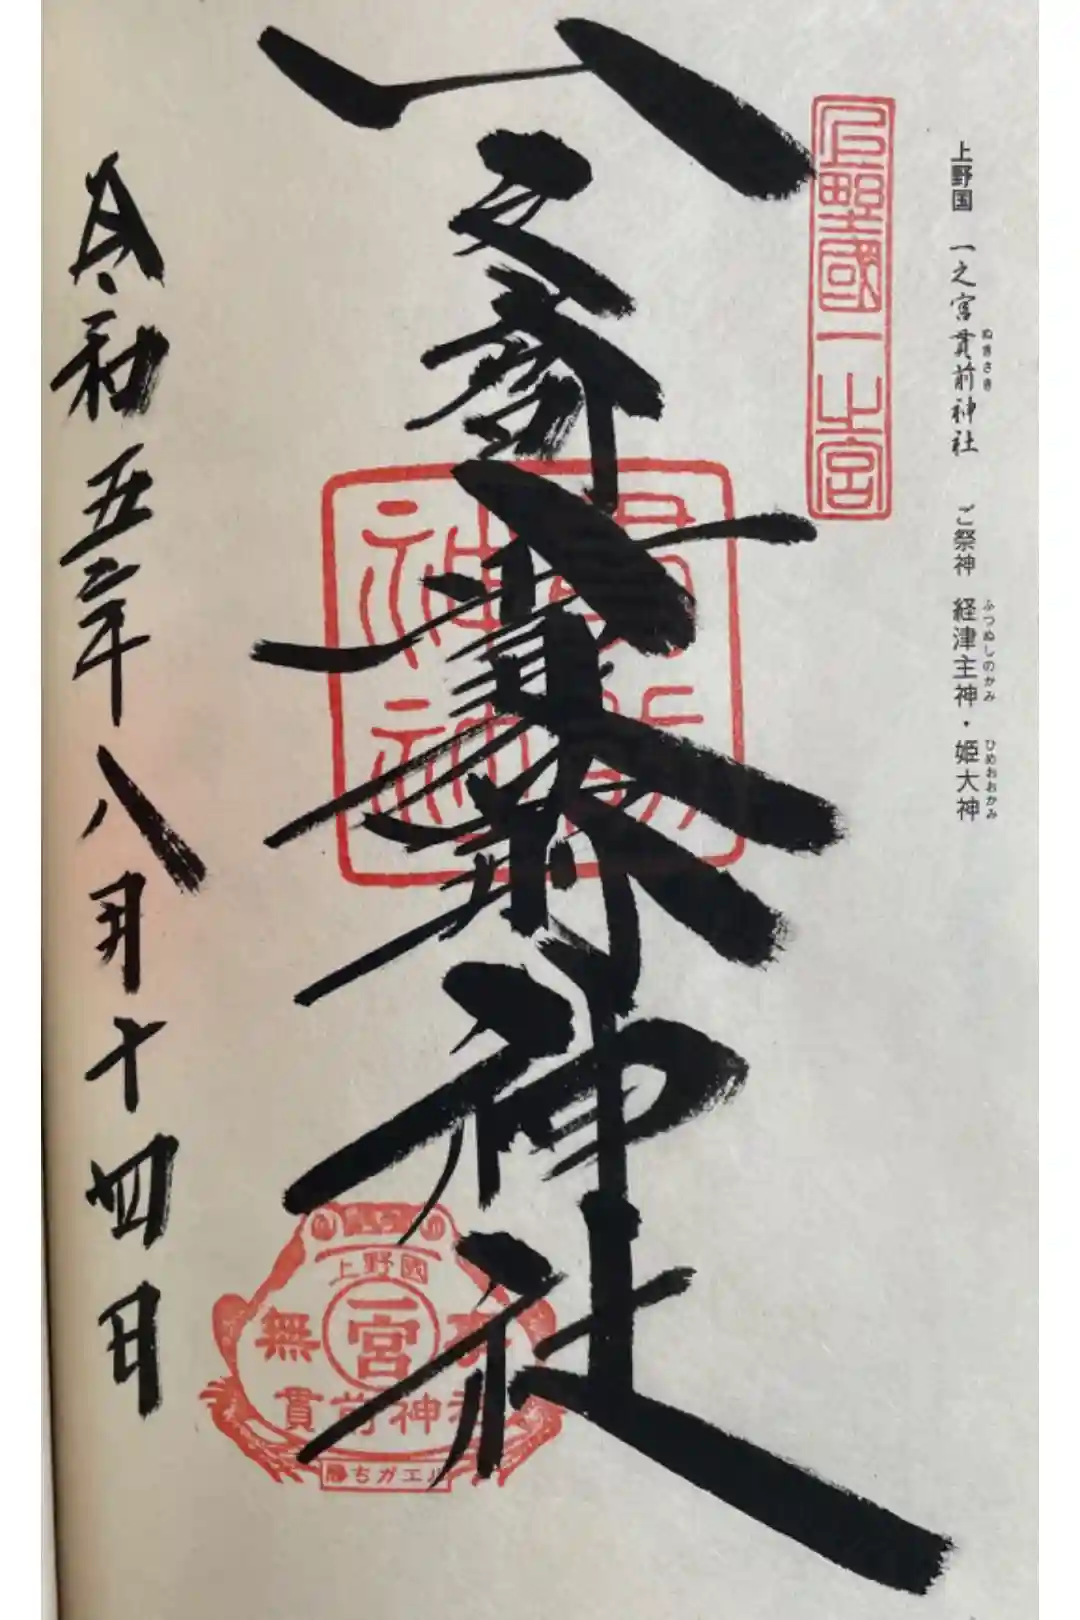 上野国 一之宮貫前神社 ご祭神 経津主神・姫大神
ぬきさき
ふつぬしのかみ
ひめおおかみ
上野國一之宮
一之宮貫前神社
貫前
神社
上野國
一宮
無事
貫前神社
勝ちガエル
令和五年八月十四日